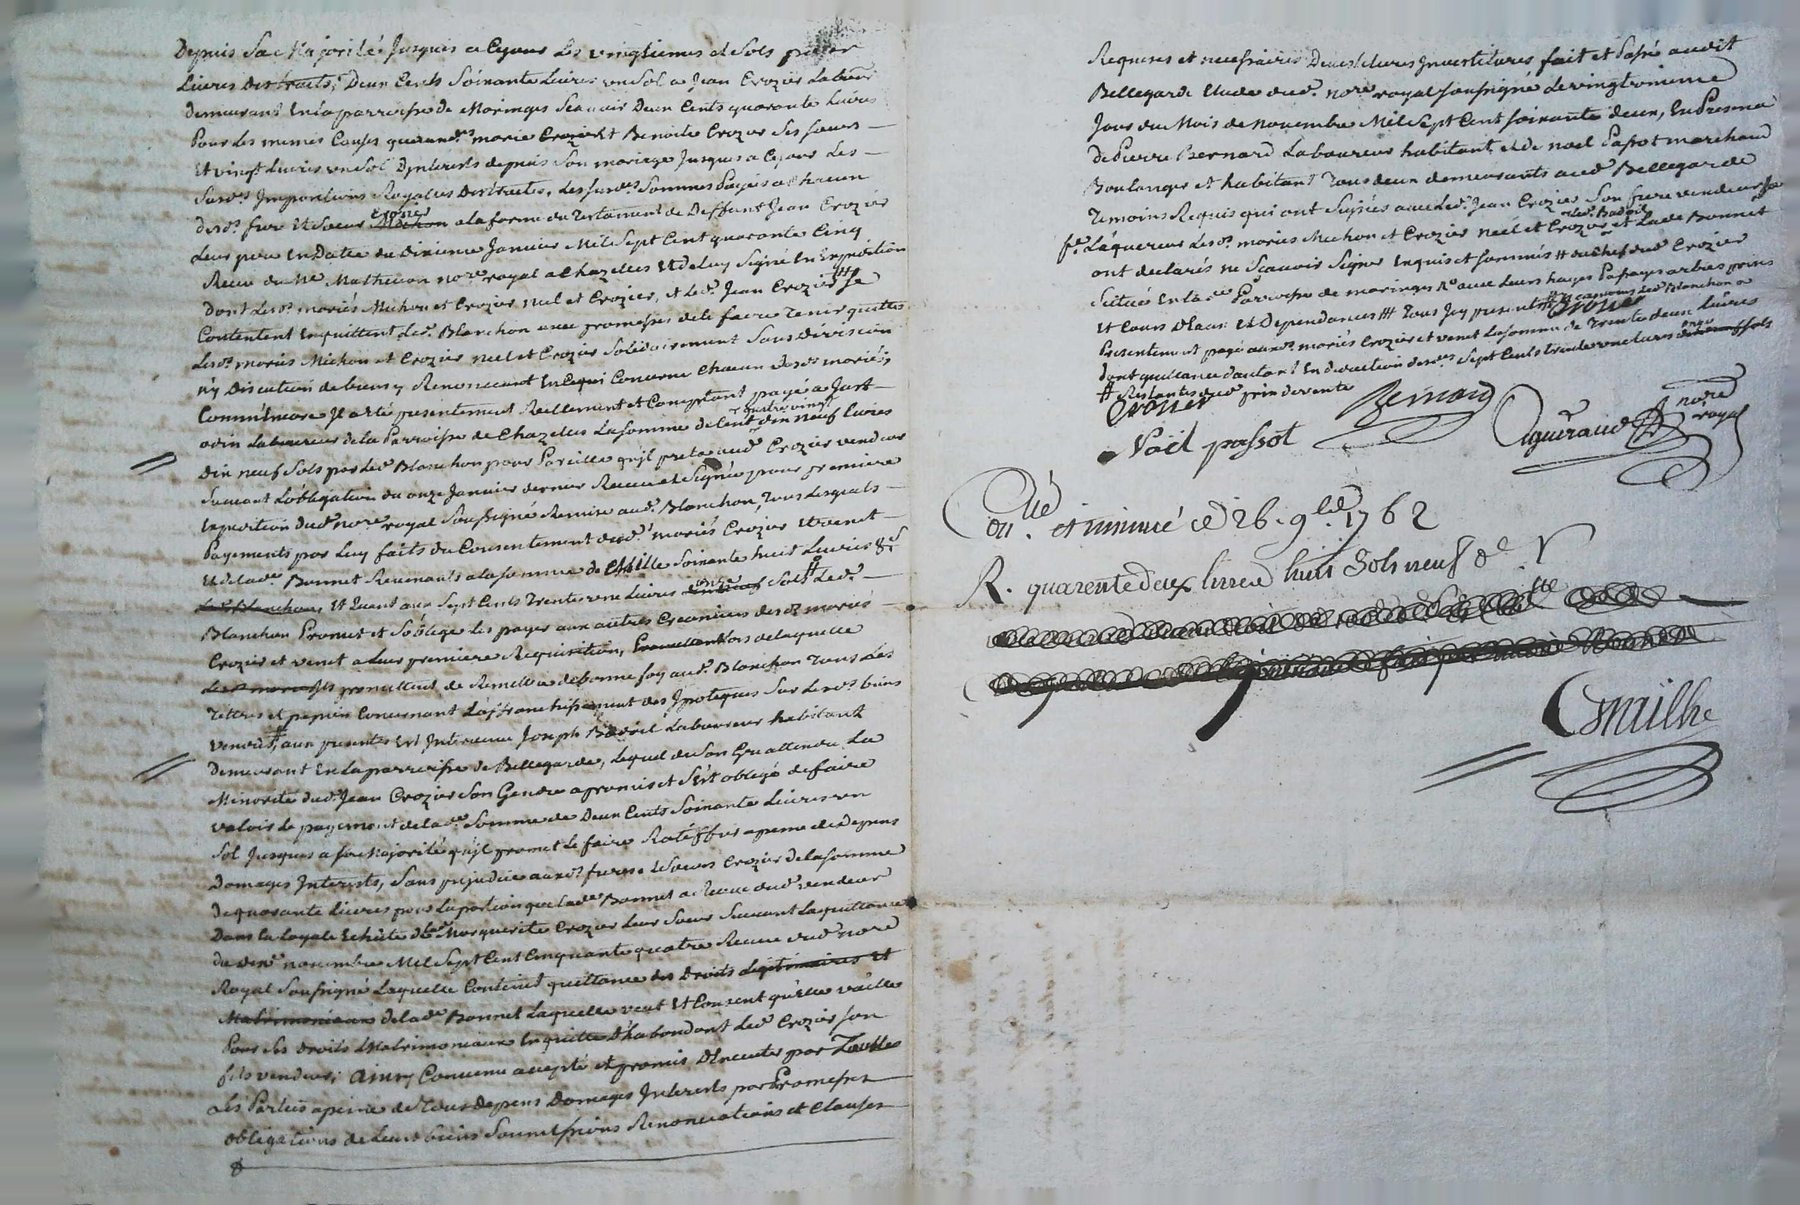 Depuis Sa Majorité Jusques a Cejour Les vingtiemes et Sols pour
Livres Destraits, Deux Cents Soixante Livres un Sol a Jean Crozier Laboureur
demeurant En la parroisse de Maringes Scavoir Deux Cents quarante Livres
Pour Les memes Causes que aux d. marie Crozier Et Benoite Crozier Ses soeurs
Et vingt Livres un Sol D'jnterests depuis Son mariage Jusques a Cejour Les
Susd. Jmpositions Royalles Destraites, Les susd. Sommes Payées a chacun
desd. frere Et Soeurs Crozier a la forme du Testament de Deffunt Jean Crozier
Leur pere En Datte du dixieme Janvier Mil Sept Cent quarante Cinq
Receu du Me Mathevon nore royal a Chazelles Et de luy Signé En Expedition
Dont Lesd. mariés Michon et Crozier Neel et Crozier, et Led. Jean Crozier Se
Contentent En quittent Led. Blanchon avec promesses de le faire Tenir quitte
Lesd. mariés Michon et Crozier neel et Crozier Solidairement Sans Division
N'y Discution de biens y Renoncant En Cequi Concerne Chacun desd. mariés
Comm'encore Jl a eté presentement Reellement et Comptant payé a Just
odin Laboureur de la Parroisse de Chazelles La somme de Cent quatre vingt dix neuf livres
Dix neuf Sols par Led. Blanchon pour Pareille qu'jl preta aud. Crozier vendeur
Suivant L'obligation du onze Janvier dernier Receue et Signée pour premiere
Expedition dud. nore royal Soussigné Remise aud. Blanchon, Tous Lesquels
Payements par Luy faits du Consentement desd. mariés Crozier Et venet
Et de lad. Bonnet Revenants a la somme de Mille Soixante huit Livres 8 s
Et Quant aux Sept Cents Trente une Livres onze Sols Led.
Blanchon Promet et S'oblige Les payer aux autres Creanciers desd. mariés
Crozier et venet a Leur premiere Requisition, Lors de laquelle
jls promettent de Remettre de bonne foy aud. Blanchon Tous Les
Tittres et papiers Concernant L'affranchissement des Jpoteques Sur Lesd. biens
vendus, aux presentes Est Jntervenu Joseph Badoil Laboureur habitant
Demeurant En La parroisse de Bellegarde, Lequel de Son Gré attendu La
Minorité dud. Jean Crozier Son Gendre a promis et S'est obligé de faire
valoir Le payement de lad. Somme de Deux Cents Soixante Livres un
Sol Jusques a sa Majorité qu'jl promet Le faire Ratiffier a peine de Depens
Domages Jnterests, Sans prejudice auxd. freres et Soeurs Crozier de la somme
De quarante Livres pour La portion que Lad. Bonnet a Receu dud. vendeur
Dans La Loyale Echute de Marguerite Crozier Leur Soeur Suivant La quittance
du dix novembre Mil Sept Cent Cinquante quatre Receue dud. nore
Royal Soussigné Laquelle Contient quittance des Droits Legitimaires Et
Matrimoniaux de lad. Bonnet Laquelle veut Et Consent qu'elle vaille
Pour Ses Droits Matrimoniaux En quitte D'habondant Led. Crozier Son
fils vendeur; ainsy Convenu accepté et promis D'Executer par Touttes
Les Parties a peine de Tous Depens Domages Jnterests par Promesses
obligations de Leurs biens Soumissions Renonciations et Clauses
Requises et necessaires Devestitures Jnvestitures fait et Passé audit
Bellegarde Etude dud. nore royal soussigné Le vingtroisieme
Jour du Mois de Novembre Mil Sept Cent soixante deux, En Presence
De Pierre Bernard Laboureur habitant et de noel Passot marchand
Boulanger et habitant Tous deux demeurants aud. Bellegarde
Temoins Requis qui ont Signés avec Led. Jean Crozier Son frere vendeur
L'aquereur Lesd. mariés Michon et Crozier neel et Crozier Led. Badoil et Lad. Bonnet
ont declarés ne Scavoir Signer Enquis et sommés # du Chef dud. Crozier
Scitués En lad. Parroisse de maringes # avec Leurs hayes Passages arbres
Et Cours D'eau Et Dependances ## Tous Jcy presents
Presentement payé auxd. mariés Crozier et venet La somme de Trente deux Livres
dont quittance d'autant En deduction desd. Sept Cents trente une livres onze sols
# Restantes du prix de vente
Crozier
Bernard
Noël passot
agueraud nore royal
Con.lé et insinué ce 26. 9bre 1762
R. quarente deux livres huit Sols neuf d.
Smilhe